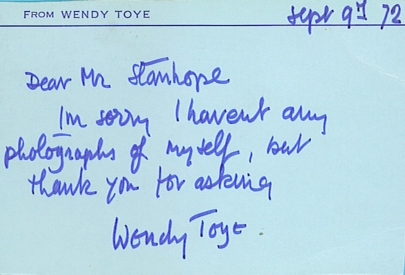 FROM WENDY TOYE
Sept 9th 72
Dear Mr Stanhope
Im sorry I havent any
photographs of myself, but
thank you for asking
Wendy Toye.